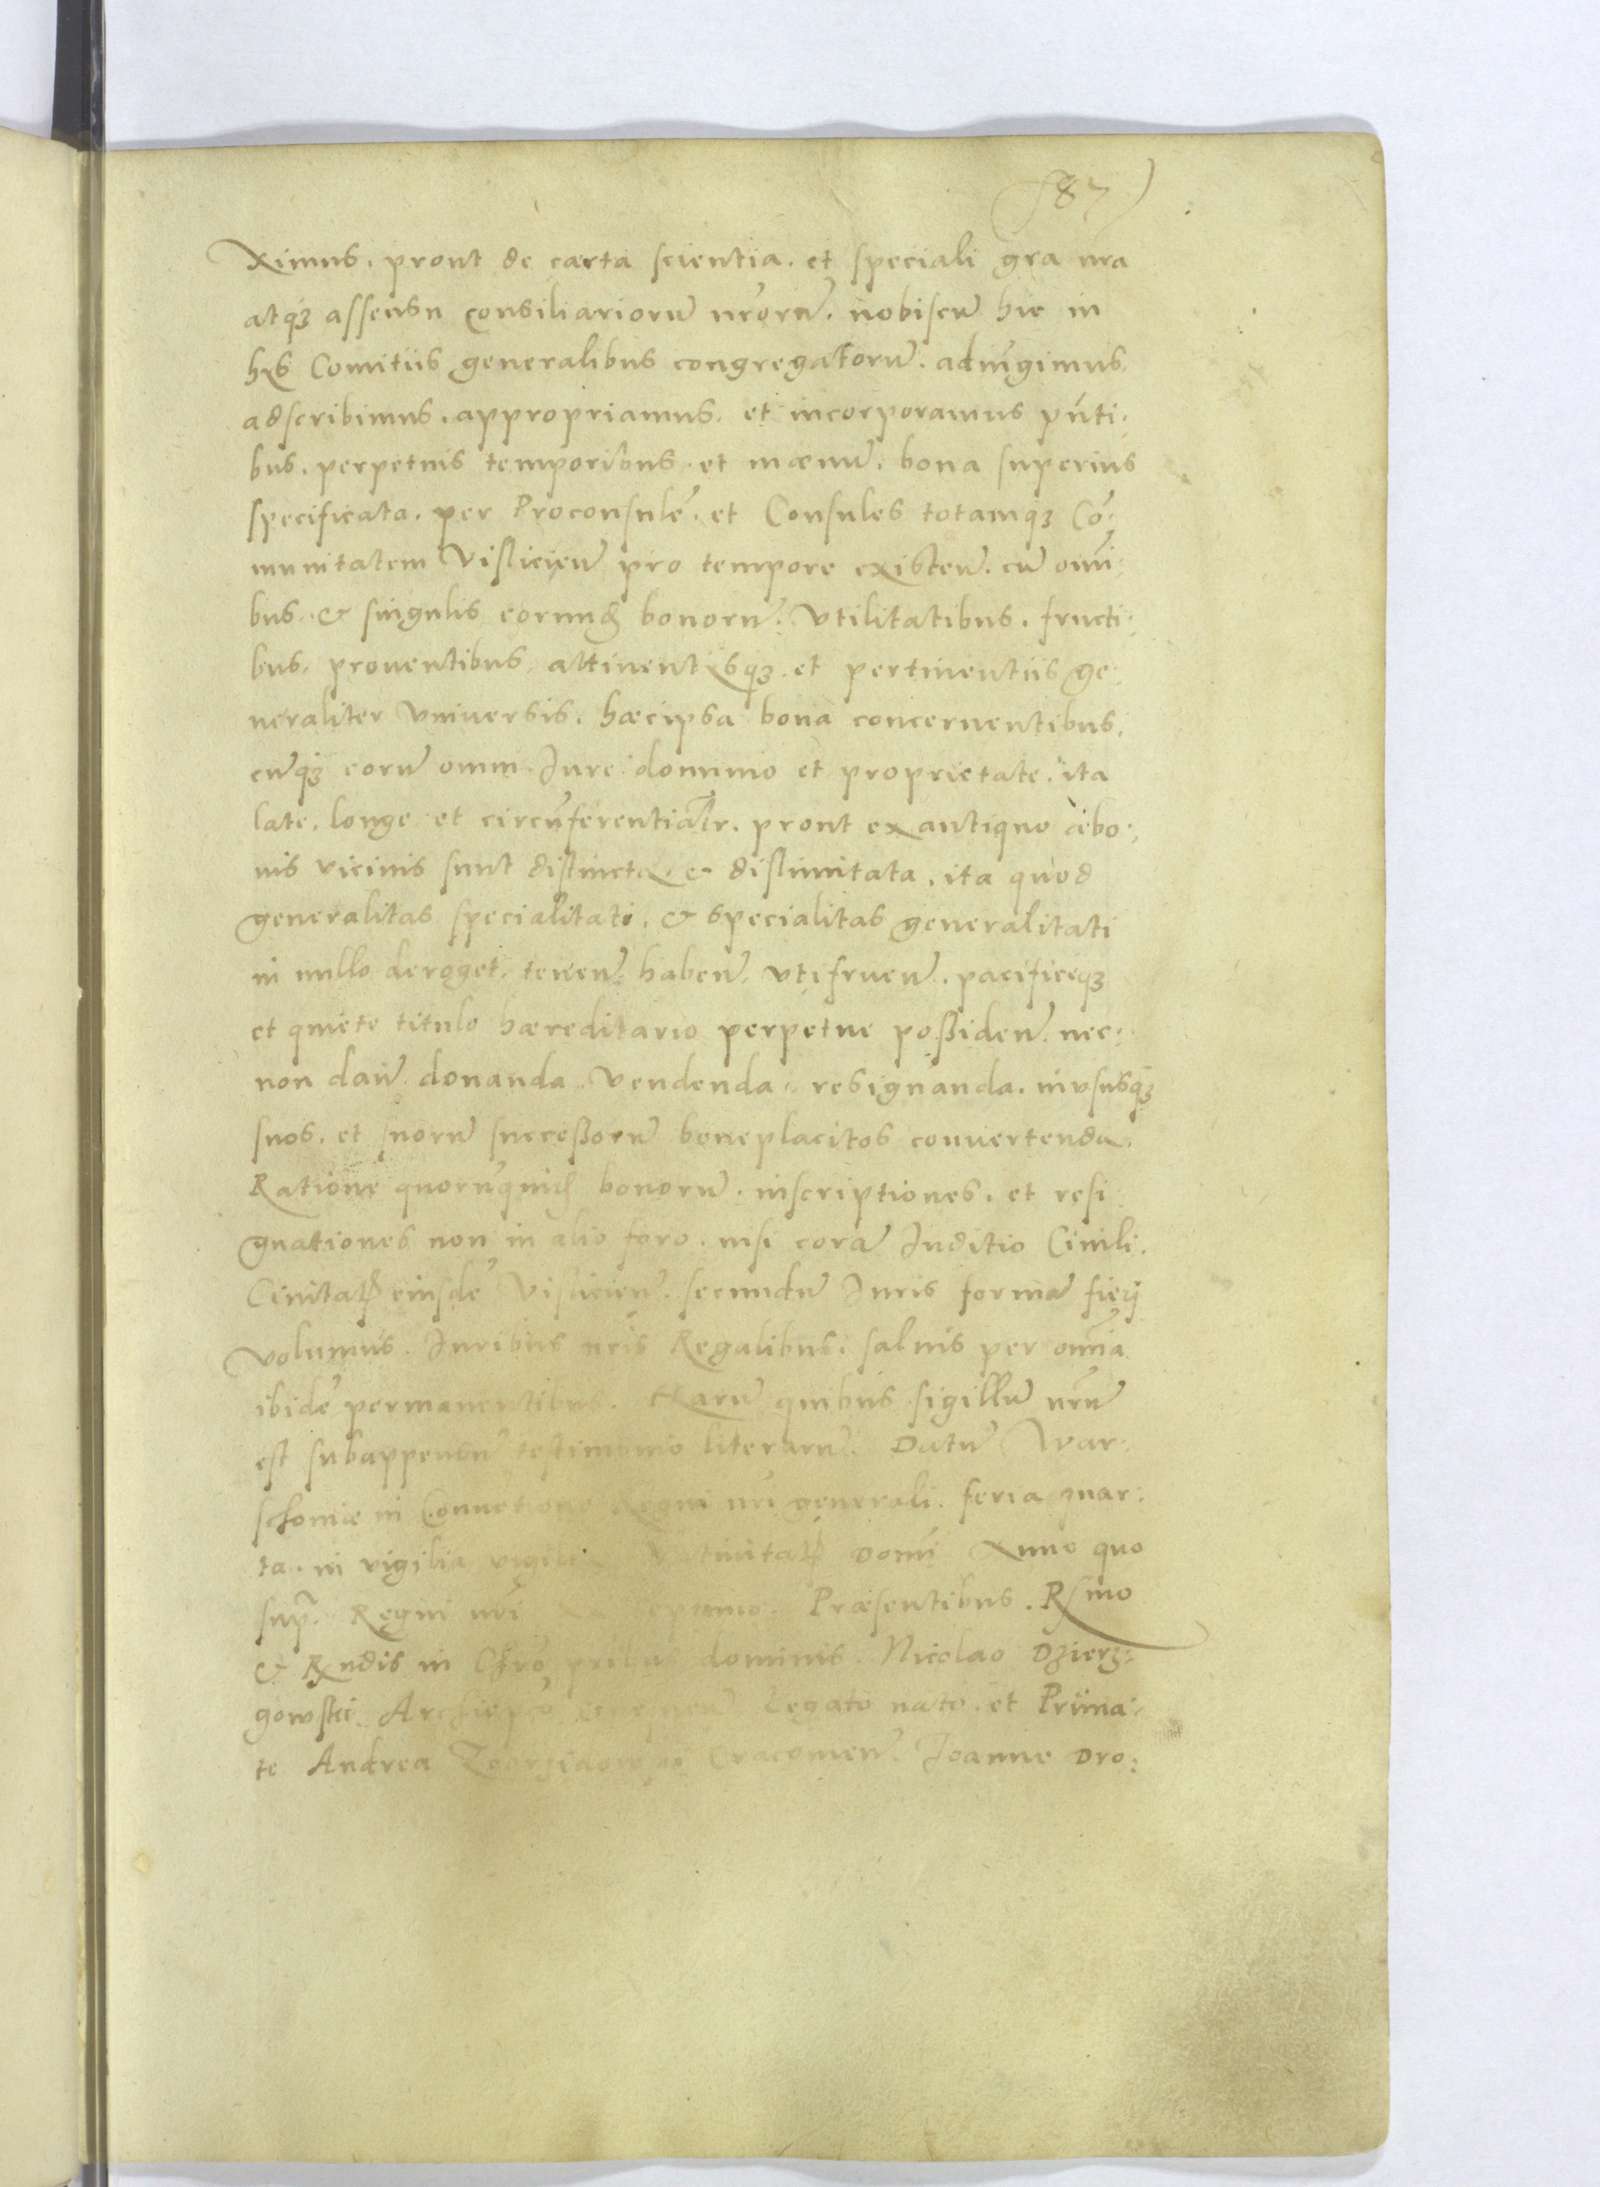 87
Ximus. prout de cærta scientia. et speciali gr̃a nr̃a
atqȝ assensu consiliarioru᷉ nr̃oru᷉. nobiscu᷉ hic in
hys Comitiis generalibus congregatoru᷉. adiu᷉gimus
adscribimus. appropriamus. et incorporamus pn̄ti:
bus. perpetuis temporibus. et in æuu᷉. bona superius
specificata. per Proconsule᷉. et Consules totamqȝ Co᷉:
munitatem Visliciên̄ pro tempore existen̄. cu᷉ omi᷉:
bus. & singulis eorund᷉ bonoru᷉. vtilitatibus. fructi:
bus. prouentibus attinentysqȝ. et pertinentiis ge:
neraliter vniuersis. hæcipsa bona concernentibus.
cu᷉qȝ eoru᷉ omni Iure dominio et proprietate. ita
late. longe et circu᷉ferentialr̃. prout ex antiquo àbo:
nis vicinis sunt distincta. & dislimitata. ita quod
generalitas specialitati. & specialitas generalitati
in nullo deroget. tenen̄. haben̄. vtifruen̄. pacificeqȝ
et quiete titulo hæreditario perpetue poßiden̄. nec:
non dan̄. donanda. vendenda. resignanda. in vsusqȝ
suos. et suoru᷉ succeßoru᷉ beneplacitos conuertenda.
Ratione quoru᷉quid᷉ bonoru᷉. inscriptiones. et resi
gnationes non in alio foro. nisi cora᷉ Iuditio Ciuili.
Ciuitat᷉ eiusde᷉ Vislicien̄. secundu᷉ Iuris forma᷉ fieri
volumus. Iuribus nr̃is Regalibus. saluis per om̃ia
ibide᷉ permanentibus. Haru᷉ quibus sigillu᷉ nr̃u᷉
est subappensu᷉ testimonio literaru᷉. Datu᷉ War:
schouie in Conuetione Regni nr̃i generali. feria quar:
ta. in vigilia Natiuitat᷉ Domi᷉ Anno quo
sup᷉. Regni nr̃i Præsentibus. Rs̃mo
& Rndis in Chr̃o pribus dominis. Nicolao Dzierz:
gowski Archiepo᷉ Legato nato. et Prima:
te Andrea Cracouien̄. Joanne Dro: